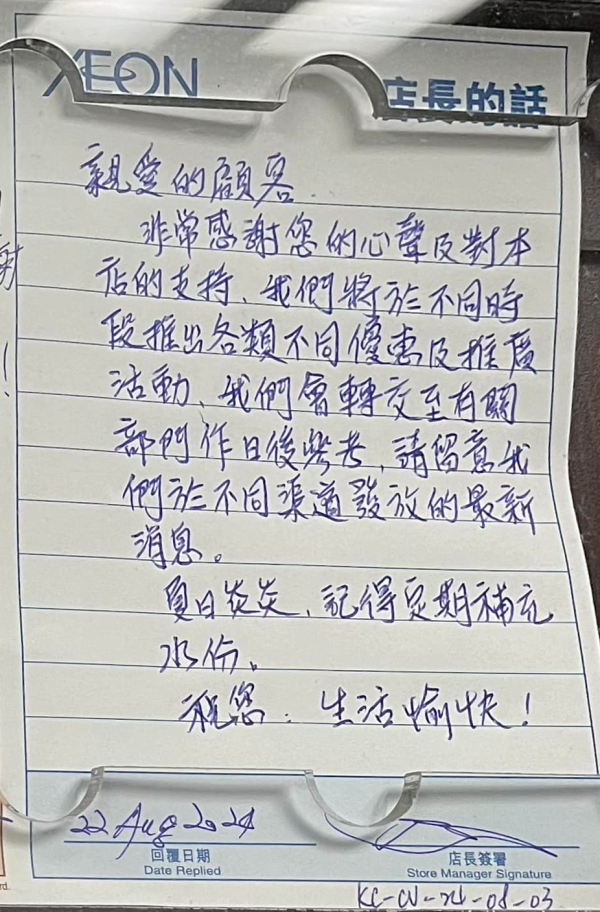 AEON
店長的話
親愛的顧客
非常感謝您的心聲及對本
店的支持、我們將於不同時
段推出各類不同優惠及推廣
活動、我們會轉交至有關
部門作日後參考,請留意我
們於不同渠道發放的最新
消息。
夏日炎炎、記得定期補充
水份。
祝您:生活愉快!
22 Aug 2024
回覆日期
Date Replied
店長簽署
Store Manager Signature
KC-CV-24-08-03